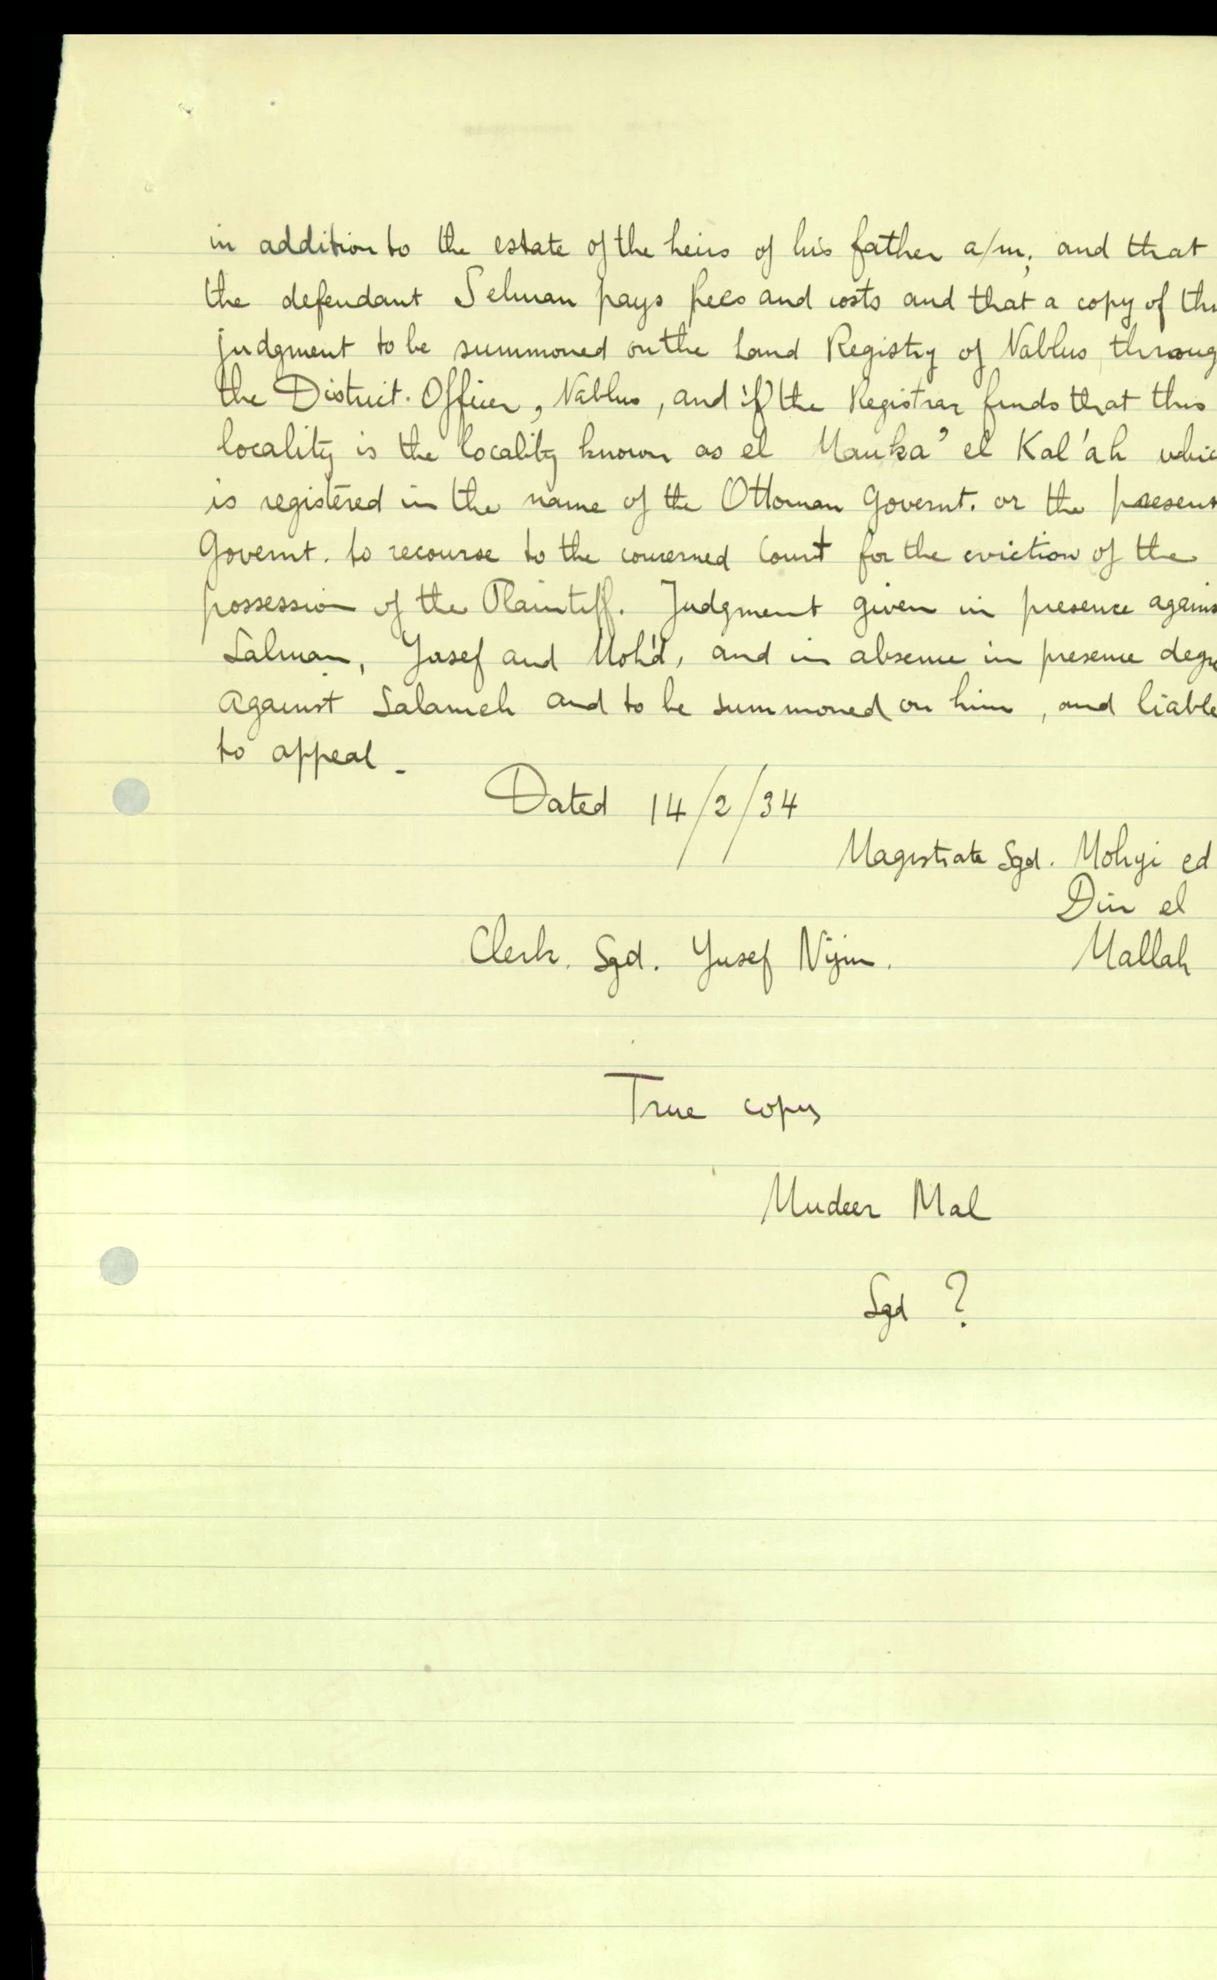 in addition to the estate of the heirs of his father a/m; and that
the defendant Selman pays fees and costs and that a copy of th
judgment to be summoned on the Land Registry of Nablus, throug
the District. Officer, Nablus, and if the Registrar finds that this
locality is the locality known as el Mauka' el Kal'ah whic
is registered in the name of the Ottoman Governt. or the present
Governt. to recourse to the concerned Court for the eviction of the
possession of the Plaintiff. Judgment given in presence agains
Salman, Yusef and Moh'd, and in absence in presence degre
against Salameh and to be summoned on him, and liable
to appeal -
Dated 14/2/34
Magistrate Sgd. Mohyi ed
Din el
Mallah
Clerk. Sgd. Yusef Nijm.
True copy
Mudeer Mal
Sgd ?